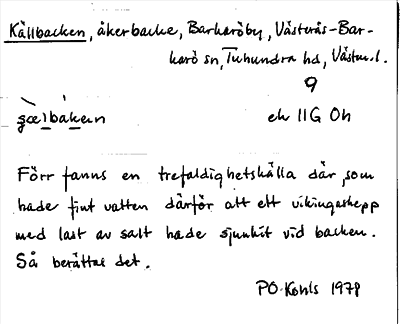 Källbacken, åkerbacke, Barkaröby, Västerås-Bar-
karö sn, Tuhundra hd, Västm.l.
9
ek 11G 0h
Förr fanns en trefaldighetskälla där, som
hade fint vatten därför att ett vikingaskepp
med last av salt hade sjunkit vid backen.
Så berättas det.
PO. Kohls 1978